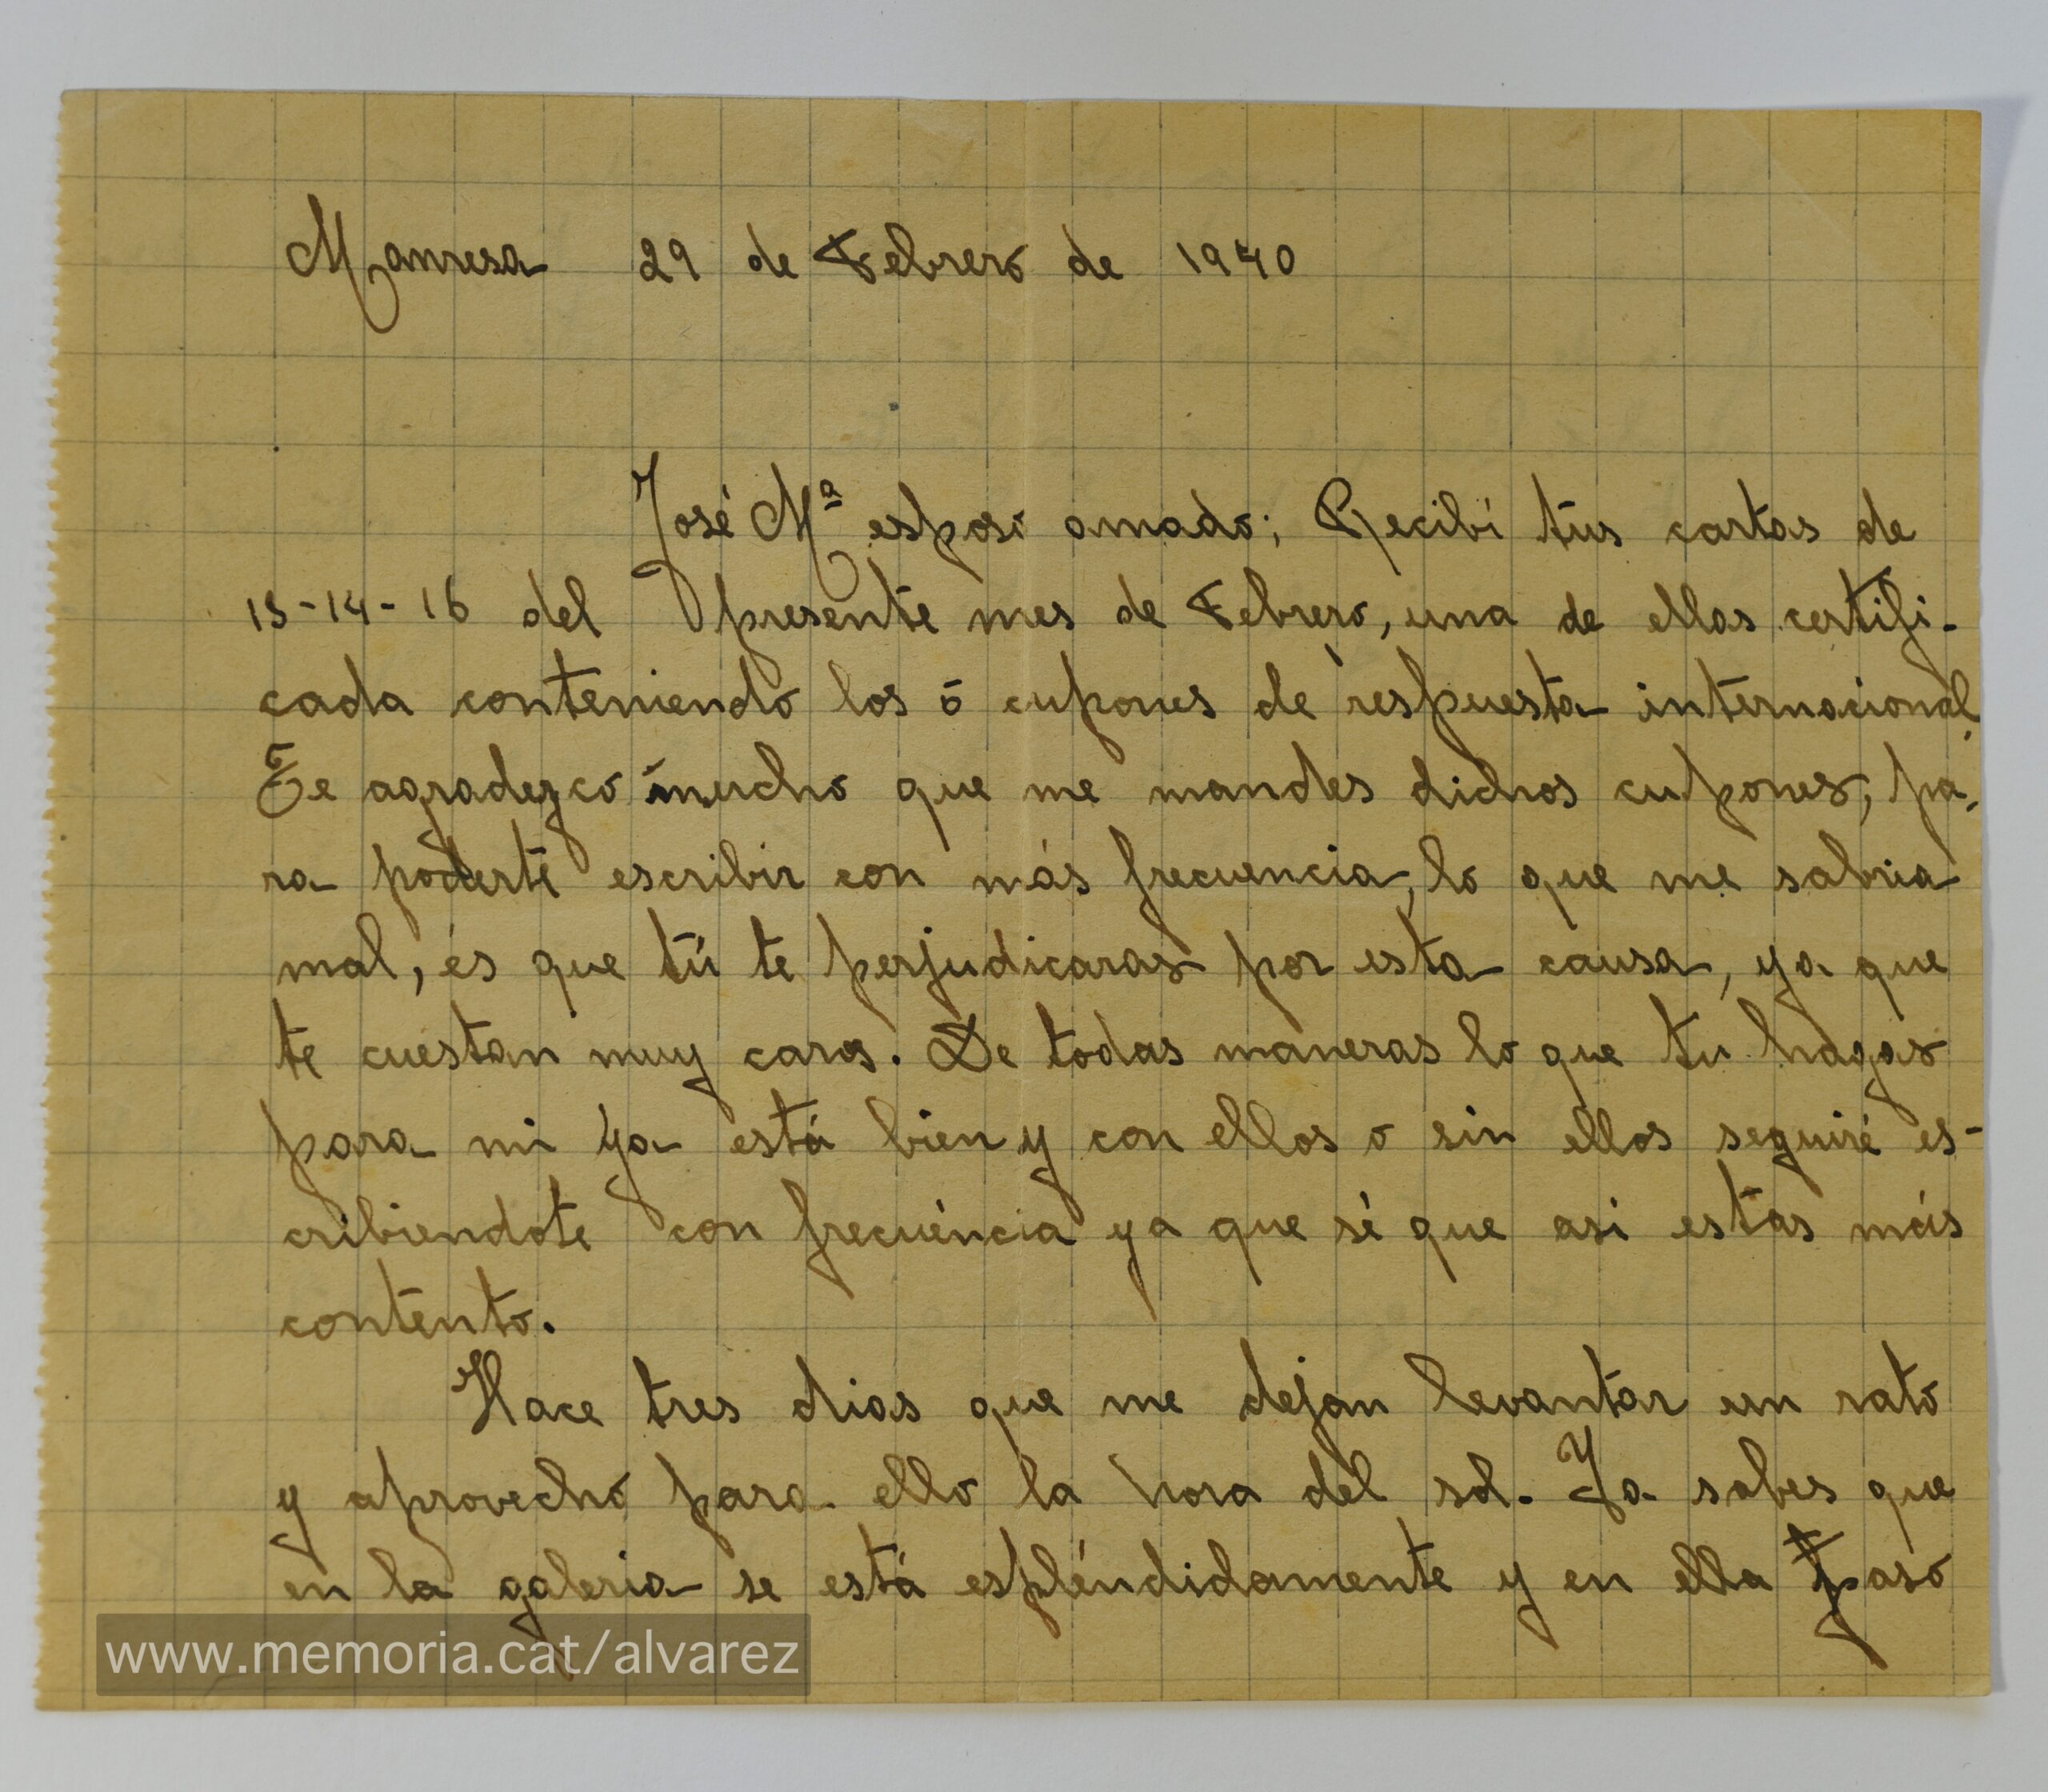 Manresa 29 de Febrero de 1940
José Mª esposo amado; Recibí tus cartas de
13-14-16 del presente mes de Febrero, una de ellas certifi-
cada conteniendo los cupones de respuesta internacional.
Te agradezco mucho que me mandes dichos cupones, pa-
ra poderte escribir con más frecuencia, lo que me sabria
mal, és que tú te perjudicaras por esta causa, ya que
te cuestan muy caros. De todas maneras lo que tu hagas
para mi ya está bien y con ellos o sin ellos seguiré es-
cribiendote con frecuéncia ya que sé que asi estas más
contento.
Hace tres dias que me dejan levantar un rato
y aprovecho para ello la hora del sol. Ya sabes que
en la galeria se está espléndidamente y en ella paso
www.memoria.cat/alvarez